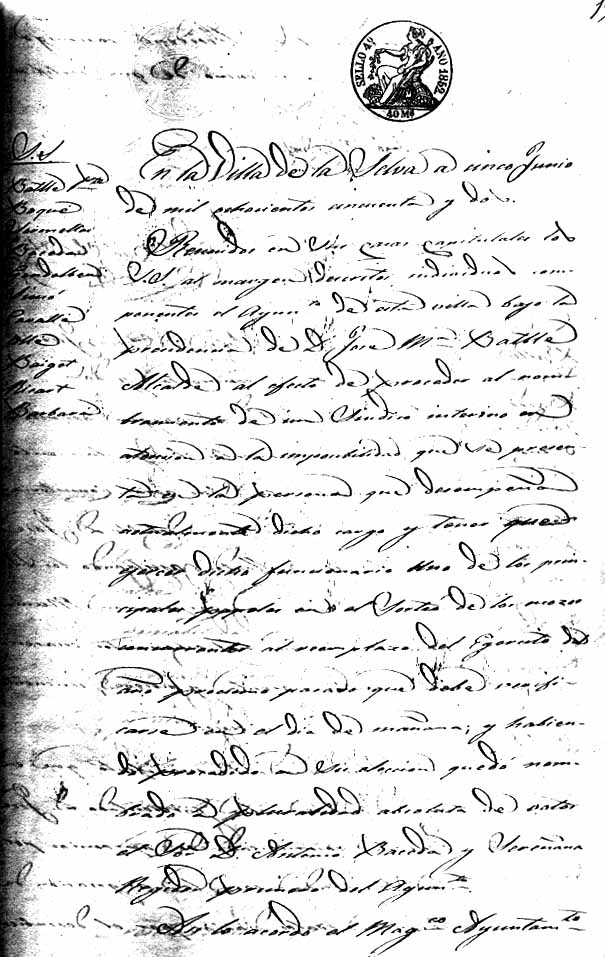 SELLO 4º AÑO 1852.
40 Ms
S.S.
Batlle Pre
Boqué
Bages
Barberá
En la Villa de la Selva a cinco Junio
de mil ochocientos cincuenta y dos.
Reunidos en sus casas capitulares los
S.S. al margen descritos individuos com-
ponentes el Ayunto de esta villa bajo la
presidencia de D. José Ma Batlle
Alcalde al efecto de proceder al nom-
bramiento de un Sindico interino en
atencion a la imposibilidad que se presen-
ta en la persona que desempeña
actualmente dicho cargo y tener que
ejercer dicho funcionario uno de los prin-
cipales papeles en el Sorteo de los mozos
al reemplazo del Ejercito del
año procsimo pasado que debe verifi-
carse en el dia de mañana; y habien-
do procedido en su eleccion quedó nom-
brado a pluralidad absoluta de votos
el Sor D. Antonio y
Regidor primero del Ayunto
Asi lo acordó el Magco Ayuntamto